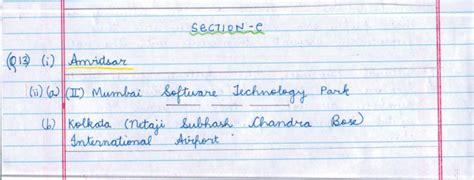 SECTION-C
(Q13) (i) Amridsar
(ii) (a) (II) Mumbai Software Technology Park
(b) Kolkata (Netaji Subhash Chandra Bose)
International Airport